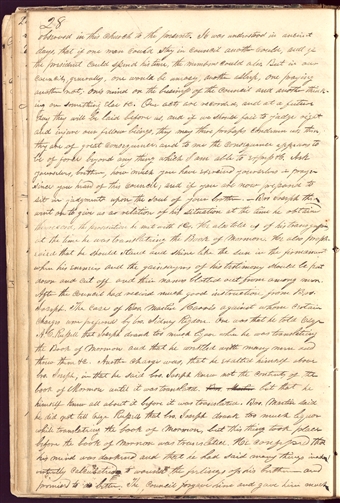 28
observed in this church to the present. It was understood in ancient
days, that if one man could stay in council another could, and if
the president could spend his time, the members could also. But in our
councils, generally, one would be uneasy, another asleep, one praying
another not, one mind on the business of the council and another think-
ing on something else &c. Our acts are recorded, and at a future
day they will be laid before us, and if we should fail to judge right
and injure our fellow beings, they may there perhaps condemn us; then
they are of great consequence, and to me the consequence appears to
be of force beyond any thing which I am able to express &c. Ask
yourselves, brethren, how much you have exercised yourselves in prayer
since you heard of this council, and if you are now prepared to
sit in judgment upon the soul of your brother. — Bro. Joseph then
went on to give us a relation of his situation at the time he obtained
the record, the persecution he met with &c. He also told us of his transgression
at the time he was translating the Book of Mormon. He also proph-
ecied that he should stand and shine like the sun in the firmament
when his enemies and the gainsayers of his testimony should be put
down and cut off and their names blotted out from among men.
After the council had received much good instruction from Bro.
Joseph, the case of Bro. Martin Harris against whom certain
charges were prefered by bro. Sidney Rigdon. One was that he told Esqr
A. C. Russell that Joseph drank too much liquor when he was translating
the Book of Mormon and that he wrestled with many men and
threw them &c. Another charge was, that he exalted himself above
bro. Joseph, in that he said bro. Joseph knew not the contents of the
book of Mormon until it was translated but that he
himself knew all about it before it was translated. Bro. Martin said
he did not tell Esqr Russell that bro. Joseph drank too much liquor
while translating the book of Mormon, but this thing took place
before the book of Mormon was translated. He confessed that
his mind was darkened and that he had said many things inad-
vertently calculating to wound the feelings of his brethren and
promised to do better. The council forgave him and gave him much